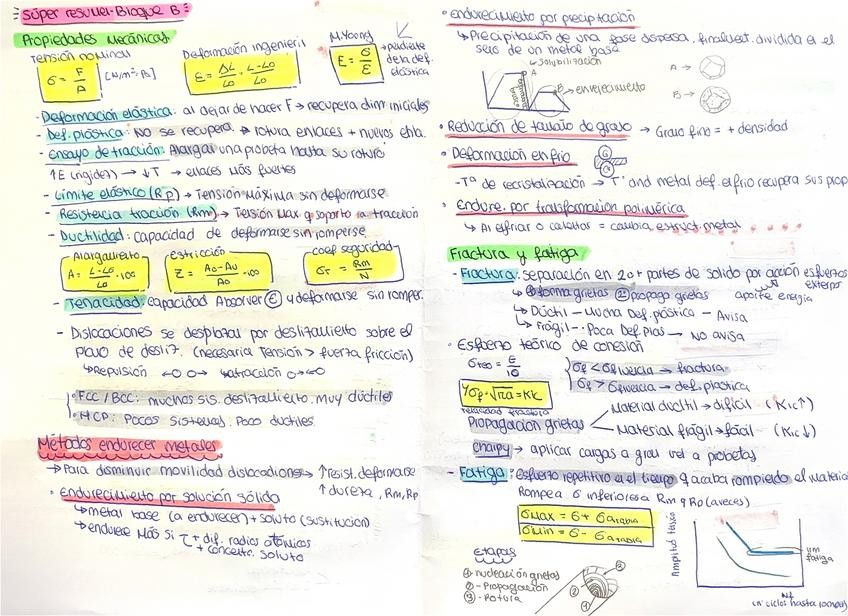 Súper resumen - Bloque B
Propiedades Mecánicas
Tensión nominal
σ = F/A [N/m² = Pa]
Deformación ingenieril
ε = ΔL/L0 = L-L0/L0
M. Young
E = σ/ε
→ pendiente
de la def.
elástica
- Deformación elástica: al dejar de hacer F → recupera dim iniciales
- Def. plástica: NO se recupera → rotura enlaces + nuevos enla.
- Ensayo de tracción: Alargar una probeta hasta su rotura
↑E (rigidez) → ↓T → enlaces más fuertes
- Límite elástico (Rp) → Tensión máxima sin deformarse
- Resistencia tracción (Rm) → Tensión max q soporta la tracción
- Ductilidad: capacidad de deformarse sin romperse
Alargamiento
A = L-L0/L0 · 100
Estricción
Z = A0-Au/A0 · 100
coef seguridad
σT = Rm/N
- Tenacidad: capacidad Absorver E y deformarse sin romper.
- Dislocaciones se desplazan por deslizamiento sobre el
plano de desliz. (necesaria Tensión > fuerza fricción)
↳ repulsión ←O O→ ↳ atracción O→←O
FCC / BCC: muchos sis. deslizamiento. muy dúctiles
HCP: Pocos sistemas. Poco ductiles
Métodos endurecer metales
→ Para disminuir movilidad dislocaciones → ↑ resist. deformarse
↑ dureza, Rm, Rp
• Endurecimiento por solución sólida
↳ metal base (a endurecer) + soluto (sustitución)
↳ endurece más si
+ dif. radios atómicos
+ concentr. soluto
• endurecimiento por precipitación
↳ Precipitación de una fase dispersa, finalment. dividida en el
seno de un metal base
solubilización
A
B
→ envejecimiento
A →
B →
• Reducción de tamaño de grano → Grano fino = + densidad
• Deformación en frío
- Tª de recristalización →
• Endure. por transformación polimérica
↳ Al enfriar o calentar = cambia estruct. metal
Fractura y fatiga
- Fractura: separación en 2 o + partes de solido por acción esfuerzos
extepor
↳ ① forma grietas ② propago grietas aporte energía
↳ Dúctil - Mucha Def. plástica - Avisa
↳ Frágil - Poca Def. Plas → No avisa
• Esfuerzo teórico de cohesión
σteo = E/10
σf < σfluencia → fractura
σf > σfluencia → def. plastica
Yσf · √πa = Kic
tenacidad fractura
Propagación grietas
Material ductil → difícil (Kic↑)
Material frágil → fácil (Kic↓)
charpy → aplicar cargas a gran vel a probetas
- Fatiga: Esfuerzo repetitivo en el tiempo q acaba rompiendo el material
Rompe a σ inferiores a Rm y Rp (a veces)
σmax = σ + σa
σmin = σ - σa
Etapas
① - nucleación grietas
② - Propagación
③ - Rotura
③
②
①
Amplitud tensión
lim
fatiga
Nf
en ciclos hasta romper